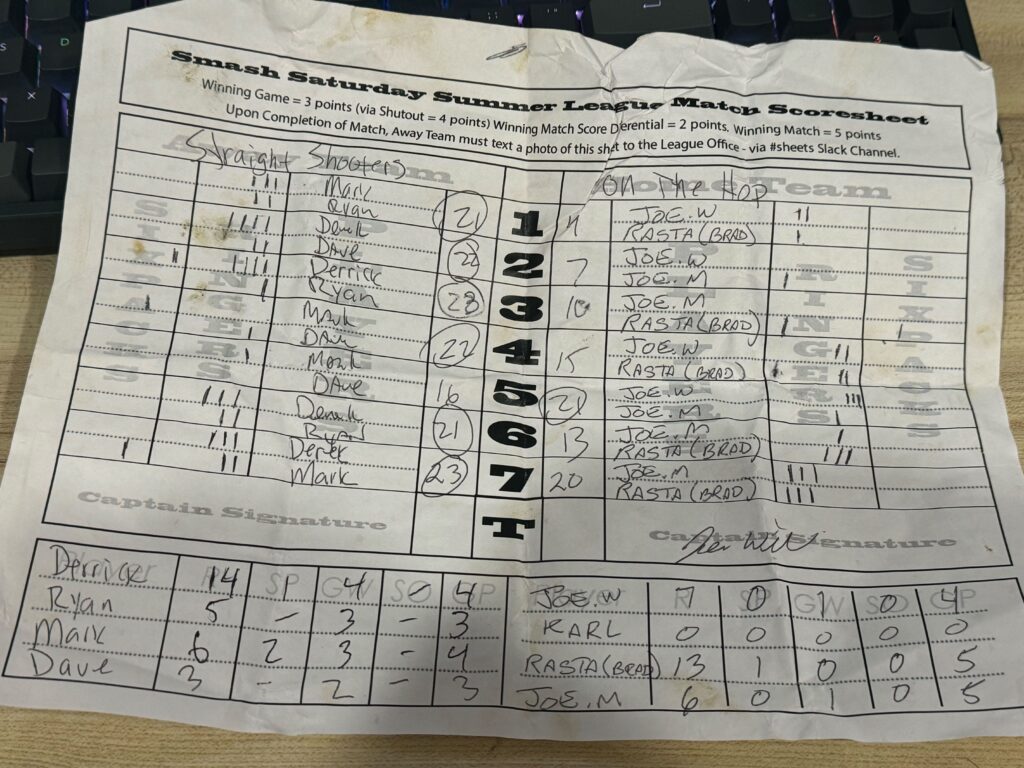 Smash Saturday Summer League Match Scoresheet
Winning Game = 3 points (via Shutout = 4 points) Winning Match Score Derential = 2 points. Winning Match = 5 points
Upon Completion of Match, Away Team must text a photo of this shet to the League Office - via #sheets Slack Channel.
Straight Shooters ON THE HOP
Home Team
SIXPACKS RINGERS RINGERS SIXPACKS
III Mark 21 1 4 JOE.W II
II Ryan RASTA (BRAD) I
IIII Derek 22 2 7 JOE.W
II Dave JOE.M I
I IIII Derrick 23 3 10 JOE.M
I Ryan RASTA (BRAD) I I
I Mark 22 4 15 JOE.W II
I DAve RASTA (BRAD) II
I Mark 16 5 21 JOE.W III
DAve JOE.M I
III Derek 21 6 13 JOE.M I
II Ryan RASTA (BRAD) III
III Derek 23 7 20 JOE.M III
I II Mark RASTA (BRAD) III
T
Captain Signature Captain Signature
Player R SP GW SO GP Player R SP GW SO GP
Derrick 14 1 4 - 4 JOE.W 7 0 1 0 4
Ryan 5 - 3 - 3 KARL 0 0 0 0 0
Mark 6 2 3 - 4 RASTA (BRAD) 13 1 0 0 5
Dave 3 - 2 - 3 JOE.M 6 0 1 0 5